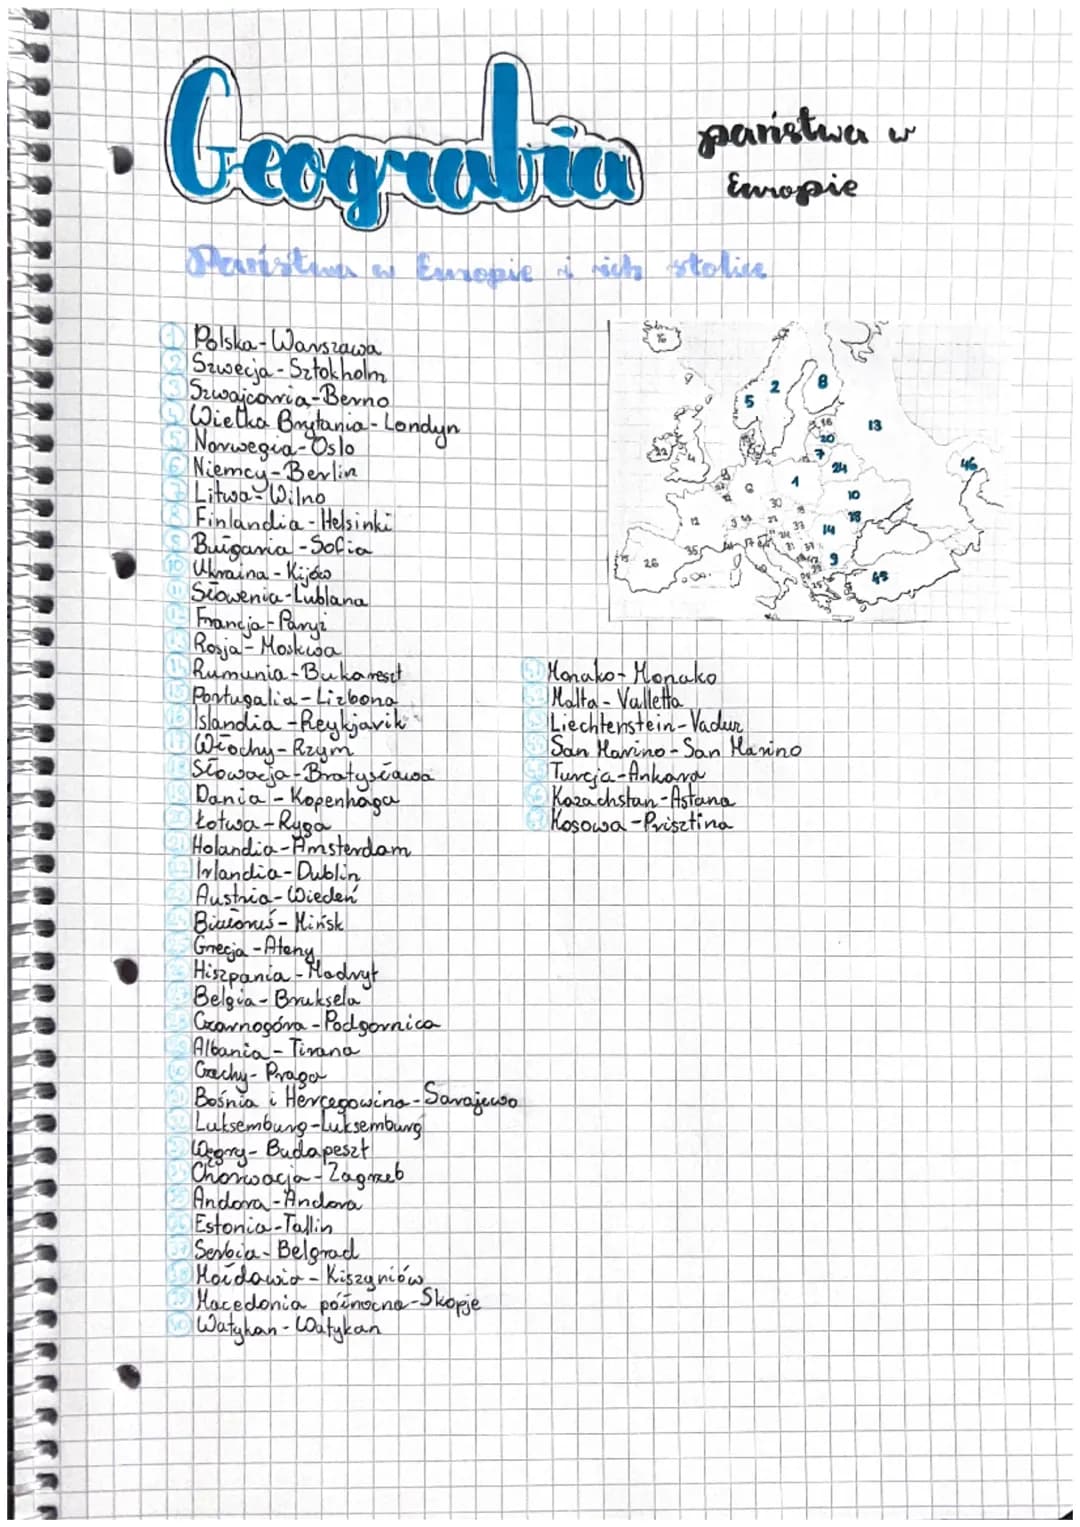 Geografia
państwa w
Europie
Państwa w Europie i ich stolice
1 Polska-Warszawa
2 Szwecja-Sztokholm
3 Szwajcaria-Berno
Wielka Brytania-Londyn
5 Norwegia-Oslo
6 Niemcy-Berlin
Litwa-Wilno
Finlandia-Helsinki
Bułgaria-Sofia
10 Ukraina-Kijów
Słowenia-Lublana
Francja-Paryż
Rosja-Moskwa
Rumunia-Bukareszt
Portugalia-Lizbona
Islandia-Reykjavik
Włochy-Rzym
Słowacja-Bratysława
Dania-Kopenhaga
Łotwa-Ryga
Holandia-Amsterdam
Irlandia-Dublin
Austria-Wiedeń
Białoruś-Mińsk
Grecja-Ateny
Hiszpania-Madryt
Belgia-Bruksela
Czarnogóra-Podgornica
Albania-Tirana
Czechy-Praga
Bośnia i Hercegowina-Sarajewo
Luksemburg-Luksemburg
Węgry-Budapeszt
Chorwacja-Zagrzeb
Andora-Andora
Estonia-Tallin
Serbia-Belgrad
Mołdawia-Kiszyniów
Macedonia północna-Skopje
Watykan-Watykan
Monako-Monako
Malta-Valletta
Liechtenstein-Vaduz
San Marino-San Marino
Turcja-Ankara
Kazachstan-Astana
Kosowo-Prisztina
16
2
8
5
13
20
7
24
46
1
10
6
12
30
14
9
35
26
45